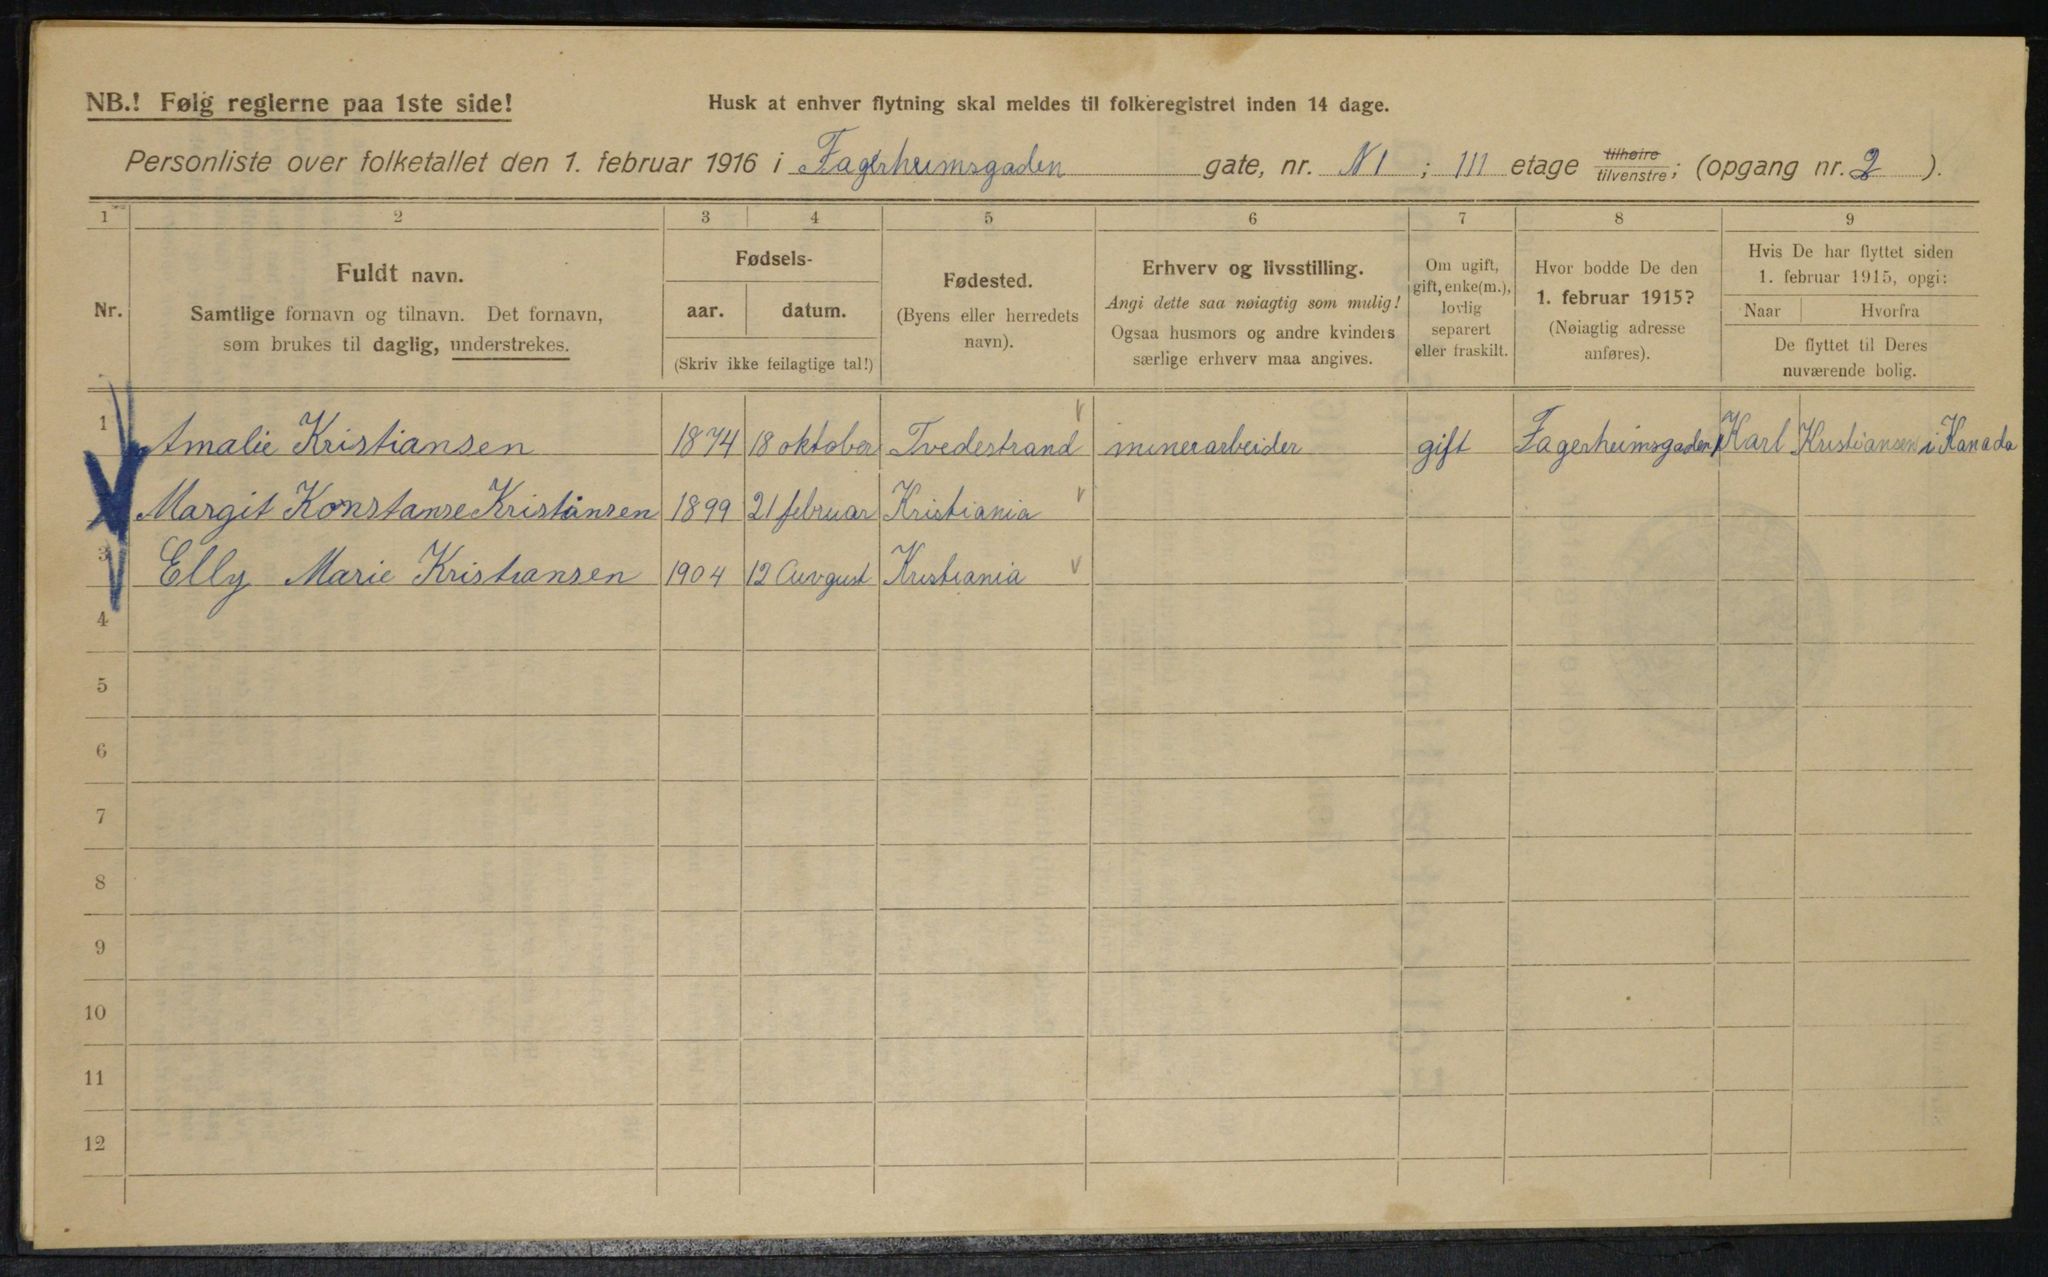 NB.! Følg reglerne paa 1ste side!
Husk at enhver flytning skal meldes til folkeregistret inden 14 dage.
Personliste over folketallet den 1. februar 1916 i Fagerheimsgaden gate, nr. N 1 ; III etage tilhøire tilvenstre; (opgang nr. 2 ).
1 2 3 4 5 6 7 8 9
Nr.
Fuldt navn.
Samtlige fornavn og tilnavn. Det fornavn,
som brukes til daglig, understrekes.
Fødsels-
aar. datum.
(Skriv ikke feilagtige tal!)
Fødested.
(Byens eller herredets
navn).
Erhverv og livsstilling.
Angi dette saa nøiagtig som mulig!
Ogsaa husmors og andre kvinders
særlige erhverv maa angives.
Om ugift,
gift, enke(m.),
lovlig
separert
eller fraskilt.
Hvor bodde De den
1. februar 1915?
(Nøiagtig adresse
anføres).
Hvis De har flyttet siden
1. februar 1915, opgi:
Naar Hvorfra
De flyttet til Deres
nuværende bolig.
1 Amalie Kristiansen 1874 18 oktober Tvedestrand minerarbeider gift Fagerheimsgaden 1 Karl Kristiansen i Kanada
Margit Konstanse Kristiansen 1899 21 februar Kristiania
3 Elly Marie Kristiansen 1904 12 Auvgust Kristiania
4
5
6
7
8
9
10
11
12